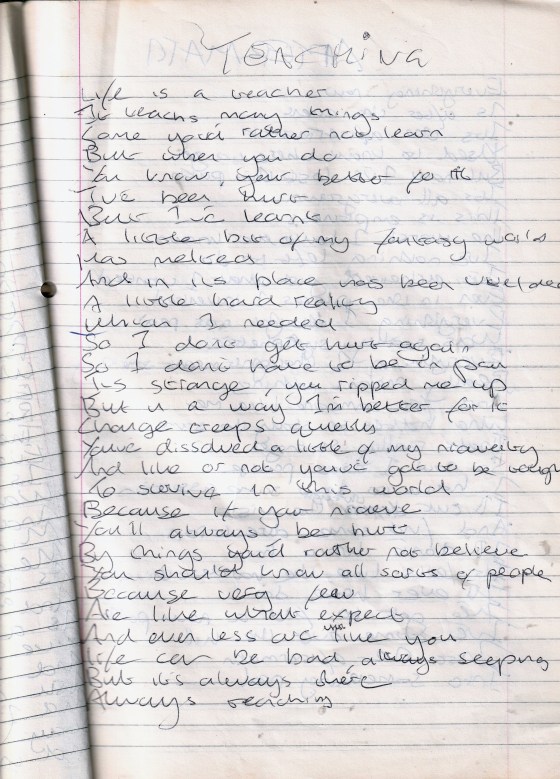 TEACHING
Life is a teacher
It teachs many things
Some you'd rather not learn
But when you do
You know, your better for it
I've been hurt
But I've learnt
A little bit of my fantasy world
Has melted
And in its place has been welded
A little hard reality
Which I needed
So I don't get hurt again
So I don't have to be in pain
It's strange, you ripped me up
But in a way I'm better for it
Change creeps quietly
You've dissolved a little of my niavity
And like or not you've got to be tough
To survive in this world
Because if your niaeve
You'll always be hurt
By things you'd rather not believe
You should know all sorts of people
Because very few
Are like what expect
you
And even less are like you
Life can be bad, always seeping
But it's always there
Always teaching